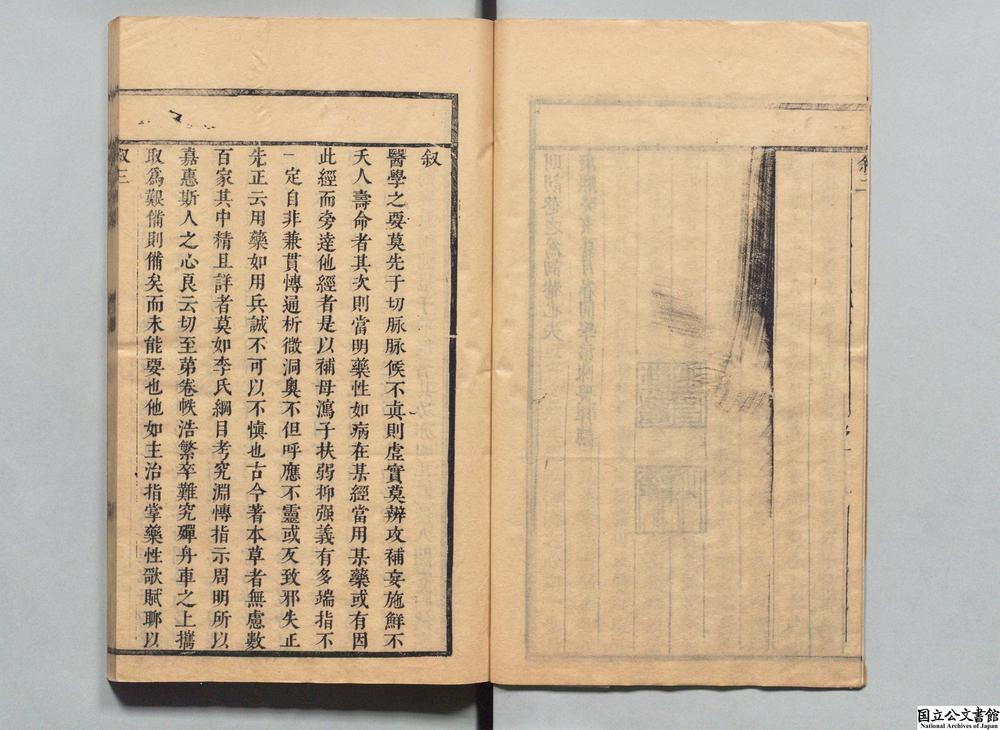 叙二
叙
醫學之要莫先于切脉脉候不真則虛實莫辨攻補妄施鮮不
夭人壽命者其次則當明藥性如病在某經當用某藥或有因
此經而旁達他經者是以補母瀉子扶弱抑强義有多端指不
一定自非兼貫博通析微洞奧不但呼應不靈或反致邪失正
先正云用藥如用兵誠不可以不慎也古今著本草者無慮數
百家其中精且詳者莫如李氏綱目考究淵博指示周明所以
嘉惠斯人之心良云切至第卷帙浩繁卒難究殫舟車之上攜
取爲艱備則備矣而未能要也他如主治指掌藥性歌賦聊以
叙三
国立公文書館
National Archives of Japan